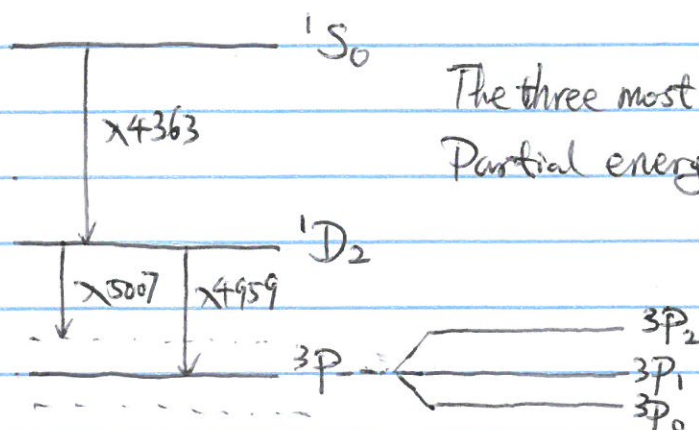 ¹S₀
The three most
λ4363
Partial energ
¹D₂
λ5007 λ4959
³P₂
³P ³P₁
³P₀